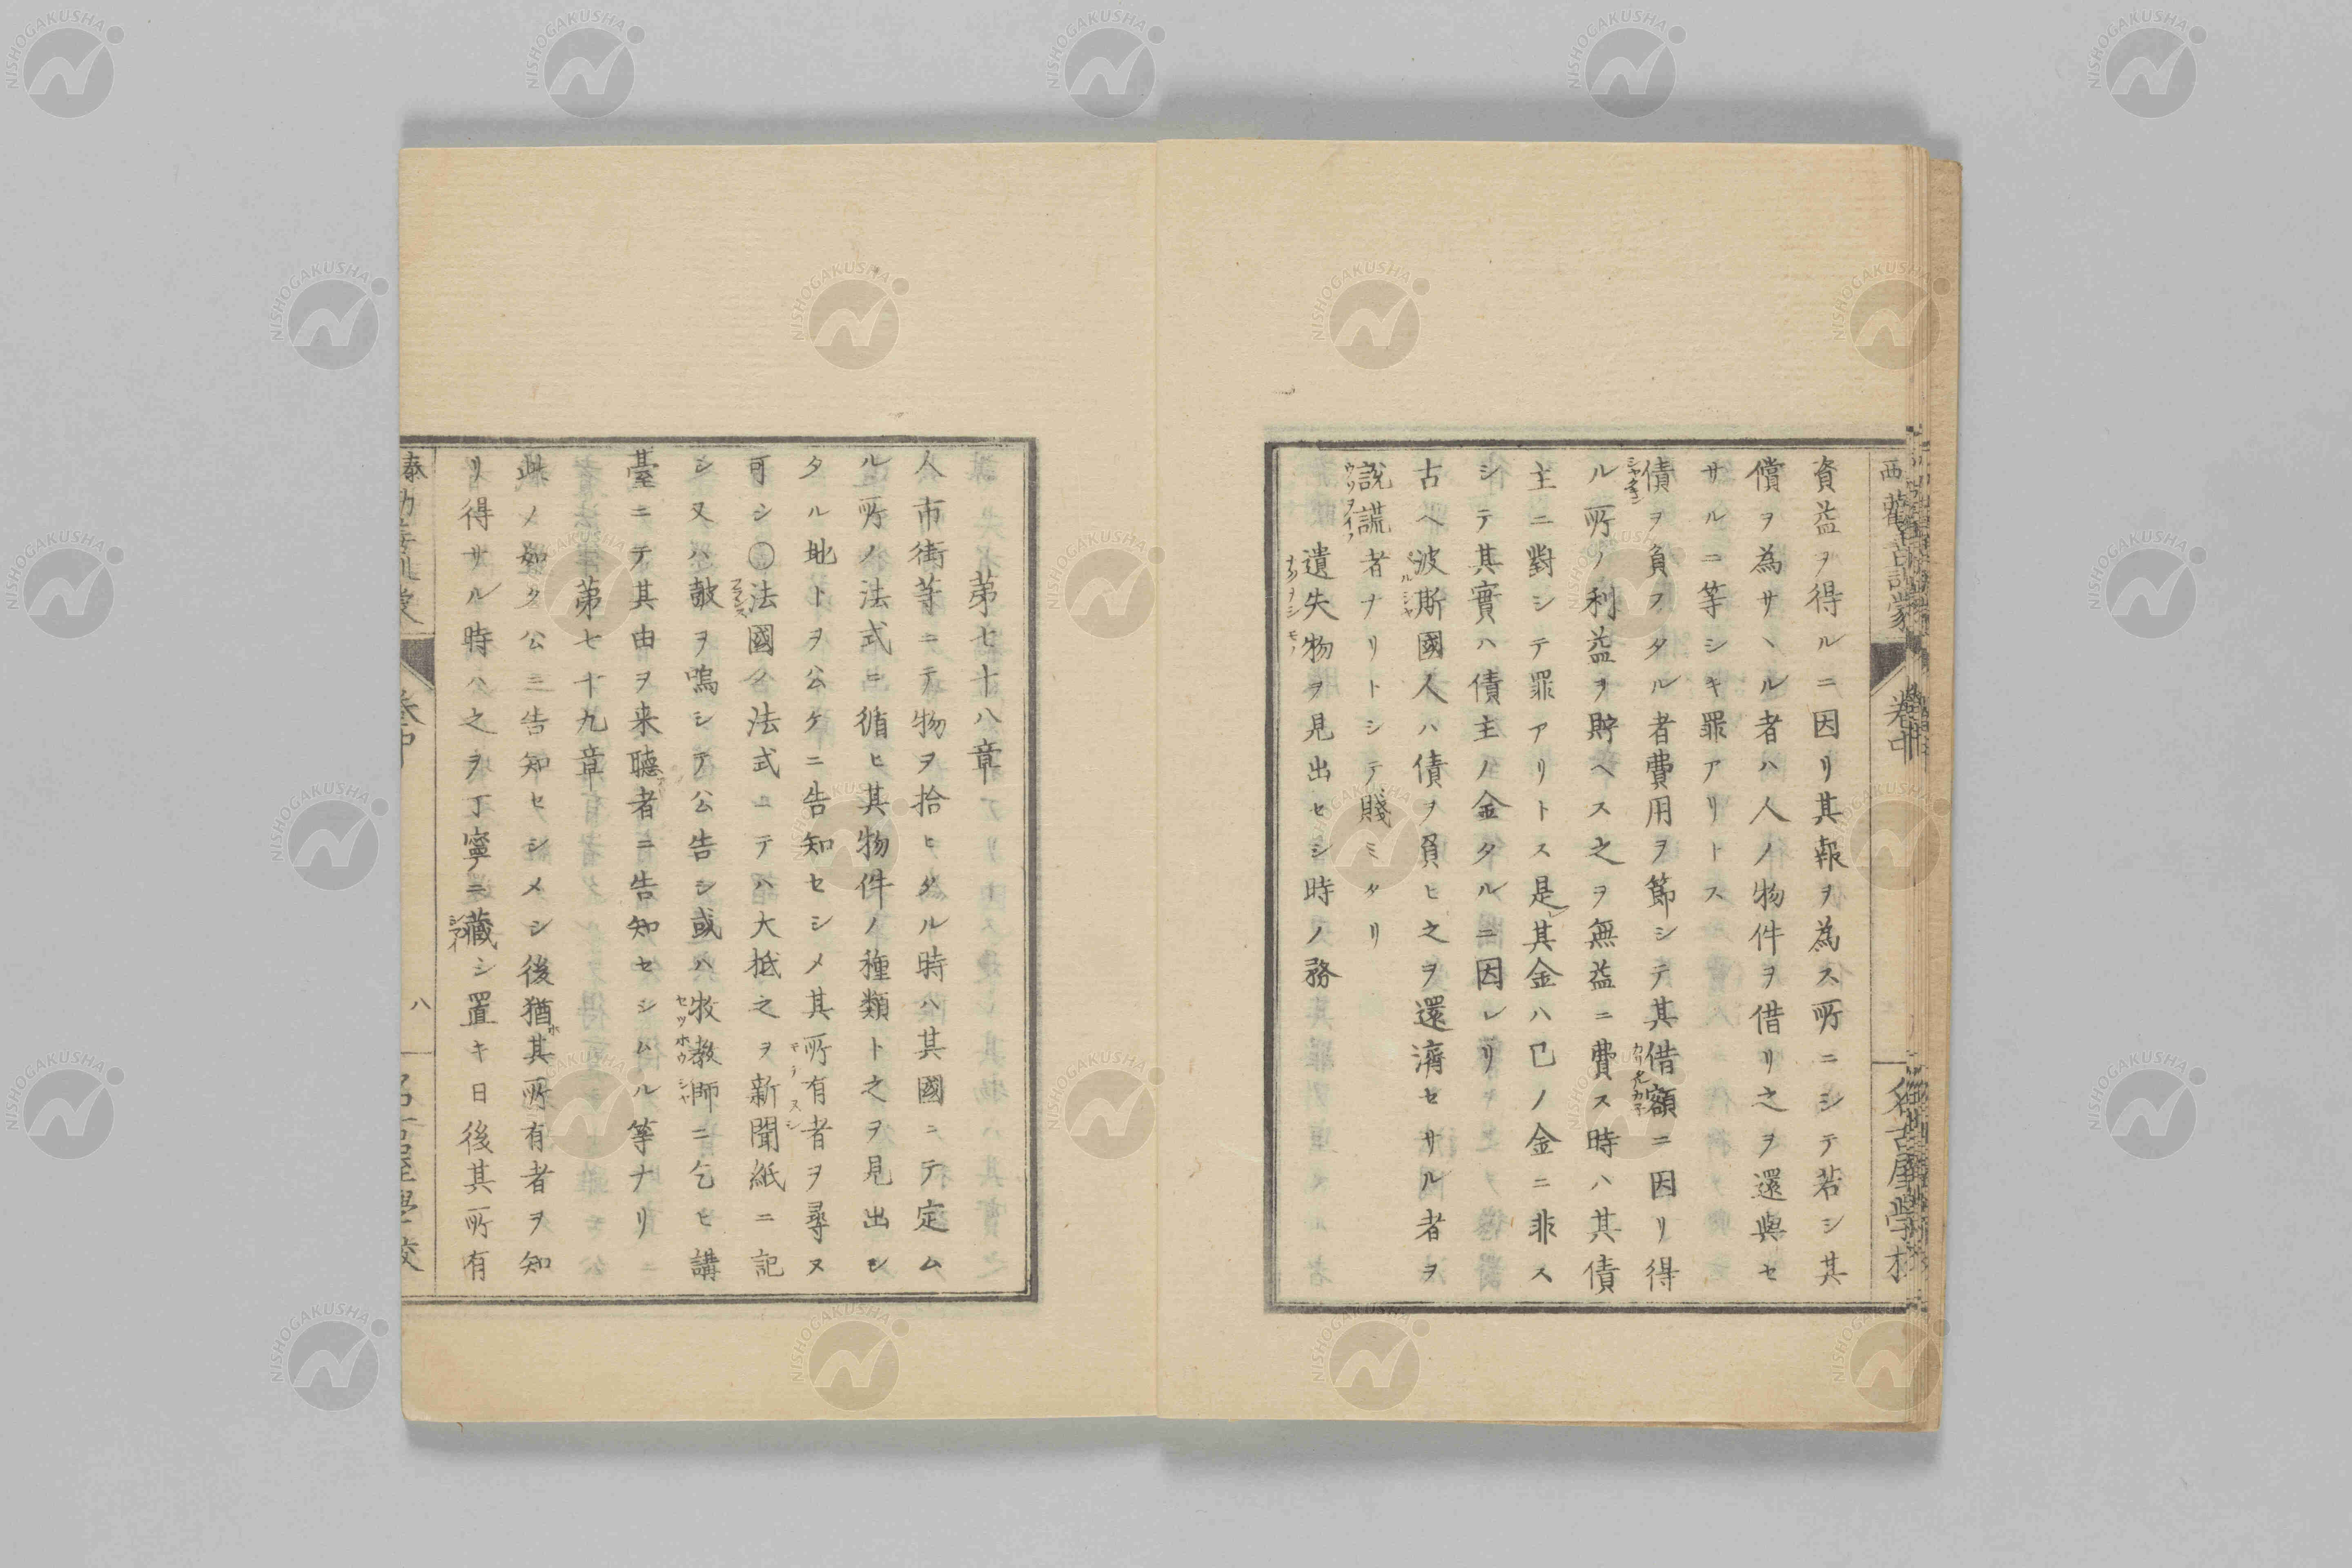 資益ヲ得ルニ因リ其報ヲ為ス所ニシテ若シ其
償ヲ為サヽル者ハ人ノ物件ヲ借リ之ヲ還與セ
サルニ等シキ罪アリトス
債ヲ負フタル者費用ヲ節シテ其借額ニ因リ得
ル所ノ利益ヲ貯ヘス之ヲ無益ニ費ス時ハ其債
主ニ對シテ罪アリトス是レ其金ハ已ノ金ニ非ス
シテ其實ハ債主ノ金タルニ因レリ
古ヘ波斯國人ハ債ヲ負ヒ之ヲ還濟セサル者ヲ
說謊者ナリトシテ賤ミタリ
ウソヲイフ
遺失物ヲ見出セシ時ノ務
第七十八章
人市街等ニテ物ヲ拾ヒタル時ハ其國ニテ定ム
ル所ノ法式ニ循ヒ其物件ノ種類ト之ヲ見出シ
タル地トヲ公ケニ告知セシメ其所有者ヲ尋ヌ
可シ〇法國ノ法式ニテハ大抵之ヲ新聞紙ニ記
フランス
シ又ハ鼓ヲ鳴シテ公告シ或ハ牧教師ニ乞ヒ講
セツホウシャ
臺ニテ其由ヲ来聽者ニ告知セシムル等ナリ
第七十九章
此ノ如ク公ニ告知セシメシ後猶ホ其所有者ヲ知
リ得サル時ハ之ヲ丁寧ニ藏シ置キ日後其所有
シマイ
卷中
八
名古屋學校
NISHOGAKUSHA